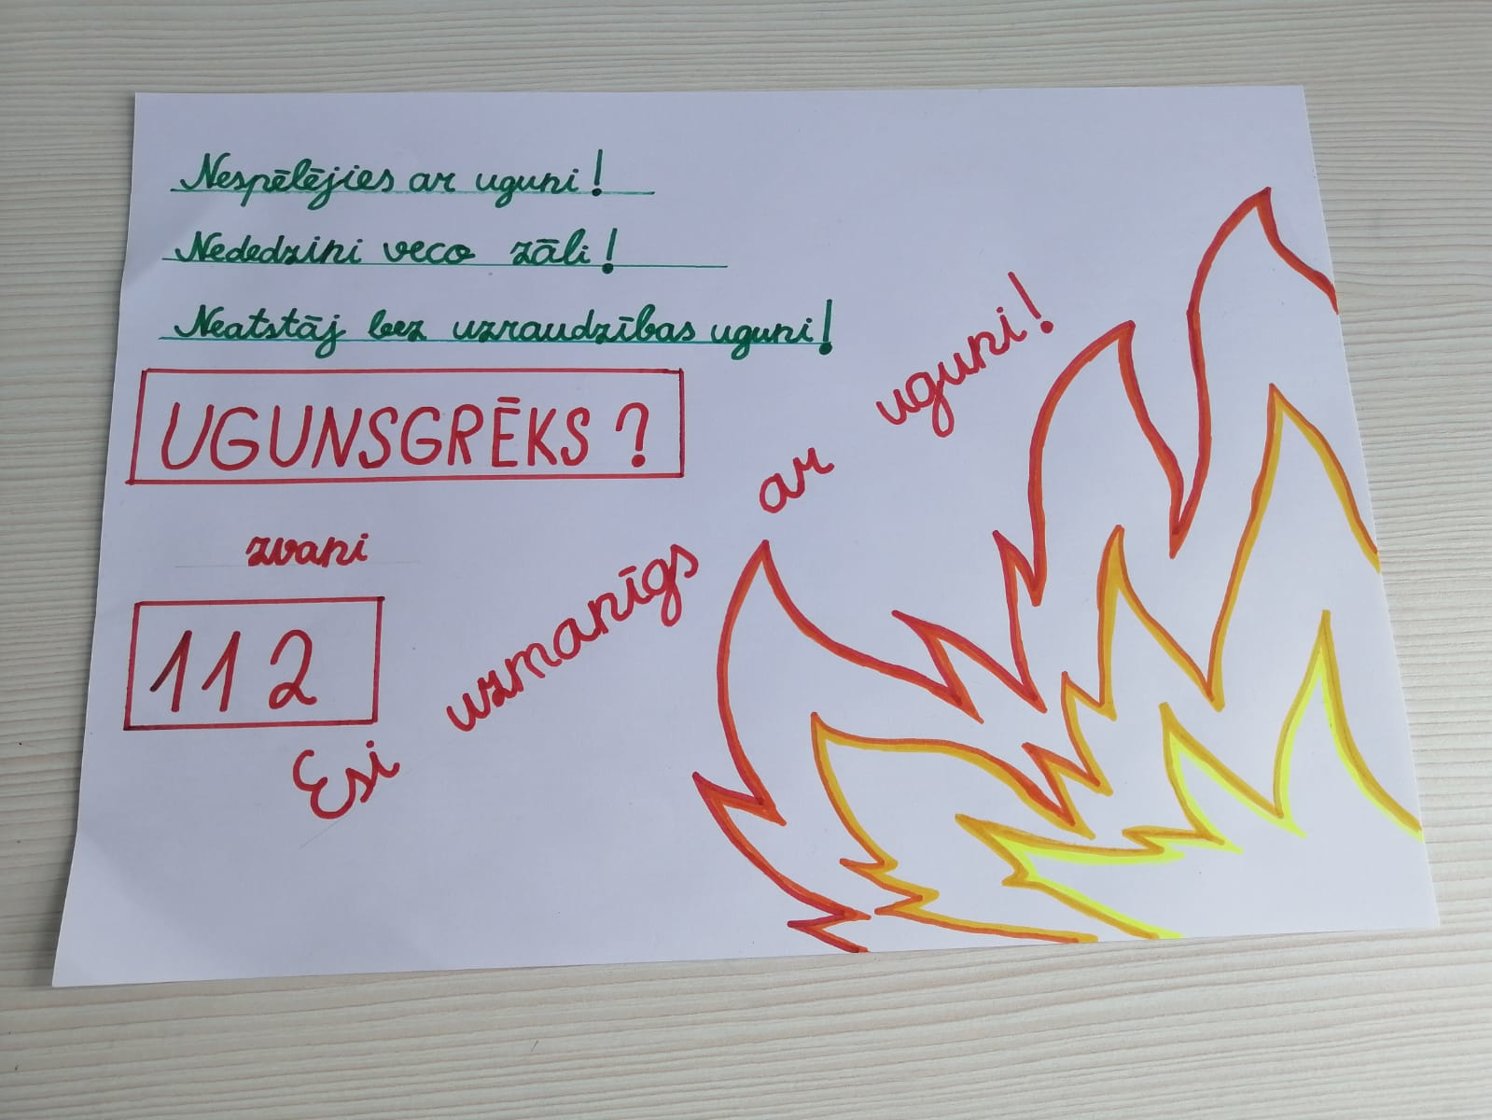 Nespēlējies ar uguni!
Nededzini veco zāli!
Neatstāj bez uzraudzības uguni!
UGUNSGRĒKS?
zvani
112
Esi uzmanīgs ar uguni!